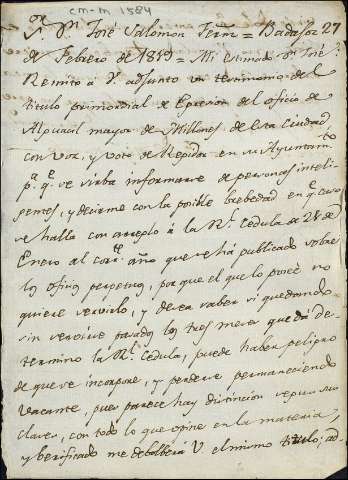 cm-m 1584
Sr. Dn. José Salomon Fern = Badajoz 27
de Febrero de 1819 = Mi estimado Dn. José:
Remito a V. adjunto un testimonio del
titulo primordial de Egresion del oficio de
Alguacil mayor de Millones de esta Ciudad
con voz, y voto de Regidor en su Ayuntamto
pa. qe. se sirba informarse de personas inteli-
gentes, y decirme con la posible brebedad en qe. caso
se halla con arreglo à la Rl. Cedula de 28 de
Enero al corre. año que se há publicado sobre
los ofisios perpetuos, por que el que lo poseé no
quiere servirlo, y desea saber si quedando-
sin servirse pasados los tres meses que dá de-
termino la Rl. Cedula, puede haber peligro
de que se incorpore, y perderse permaneciendo
vacante, pues parece hay distincion segun sus
clases, con todo lo que opine en la materia,
y berificado me debolberá V. el mismo titulo; ad-